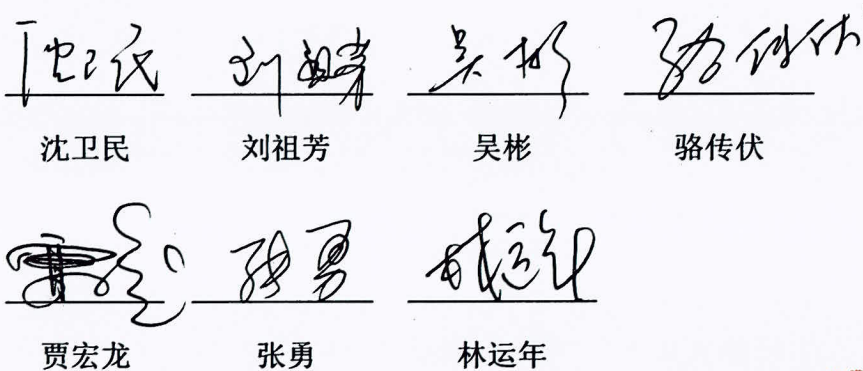 沈卫民 刘祖芳 吴彬 骆传伏
沈卫民 刘祖芳 吴彬 骆传伏
贾宏龙 张勇 林运年
贾宏龙 张勇 林运年